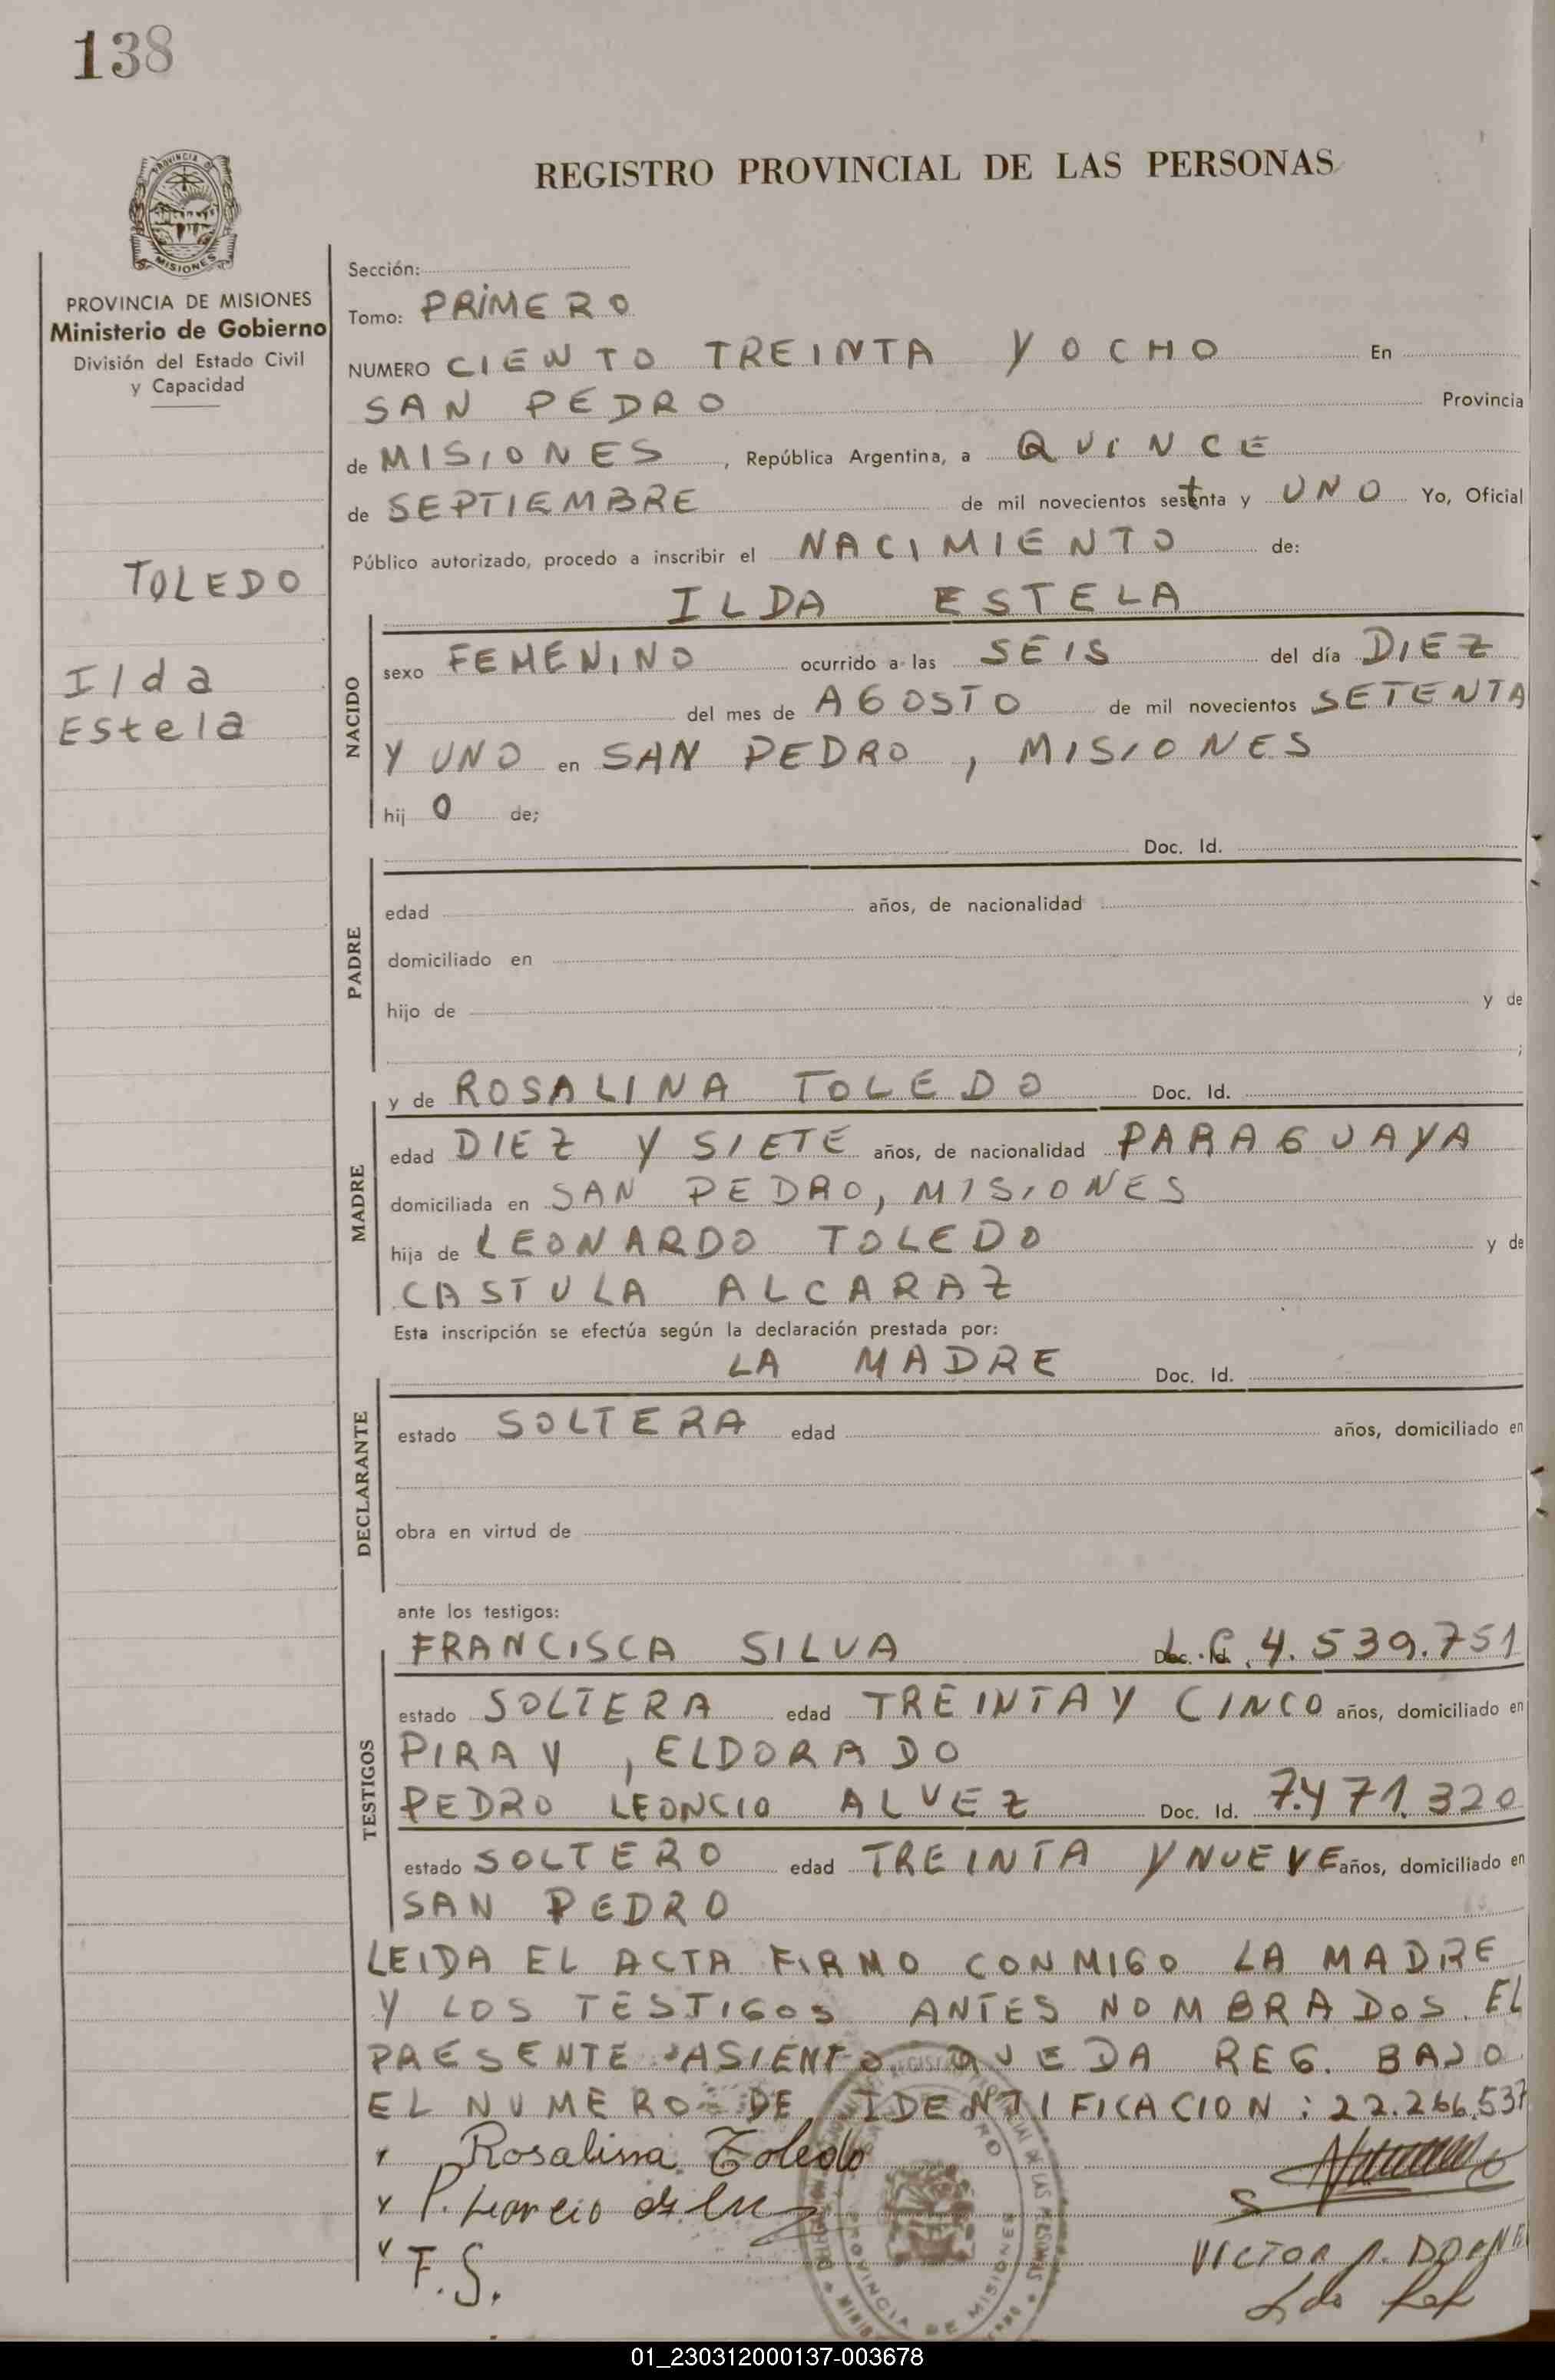 138
REGISTRO PROVINCIAL DE LAS PERSONAS
PROVINCIA DE MISIONES
Ministerio de Gobierno
División del Estado Civil
y Capacidad
TOLEDO
Ilda
Estela
Sección:
Tomo: PRIMERO
NUMERO CIENTO TREINTA Y OCHO En
SAN PEDRO Provincia
de MISIONES, República Argentina, a QUINCE
de SEPTIEMBRE de mil novecientos setenta y UNO Yo, Oficial
Público autorizado, procedo a inscribir el NACIMIENTO de:
ILDA ESTELA
NACIDO
sexo FEMENINO ocurrido a las SEIS del día DIEZ
del mes de AGOSTO de mil novecientos SETENTA
Y UNO en SAN PEDRO, MISIONES
hij O de;
Doc. Id.
PADRE
edad años, de nacionalidad
domiciliado en
hijo de y de
;
y de ROSALINA TOLEDO Doc. Id.
MADRE
edad DIEZ Y SIETE años, de nacionalidad PARAGUAYA
domiciliada en SAN PEDRO, MISIONES
hija de LEONARDO TOLEDO y de
CASTULA ALCARAZ
Esta inscripción se efectúa según la declaración prestada por:
LA MADRE Doc. Id.
DECLARANTE
estado SOLTERA edad años, domiciliado en
obra en virtud de
ante los testigos:
TESTIGOS
FRANCISCA SILVA L.C. 4.539.751
estado SOLTERA edad TREINTA Y CINCO años, domiciliado en
PIRAY, ELDORADO
PEDRO LEONCIO ALVEZ Doc. Id. 7.471.320
estado SOLTERO edad TREINTA Y NUEVE años, domiciliado en
SAN PEDRO
LEIDA EL ACTA FIRMO CONMIGO LA MADRE
Y LOS TESTIGOS ANTES NOMBRADOS. EL
PRESENTE ASIENTO QUEDA REG. BAJO
EL NUMERO DE IDENTIFICACION: 22.266.537
Rosalina Toledo
P. Leoncio
F.S.
VICTOR
PROVINCIA DE MISIONES
01_230312000137-003678